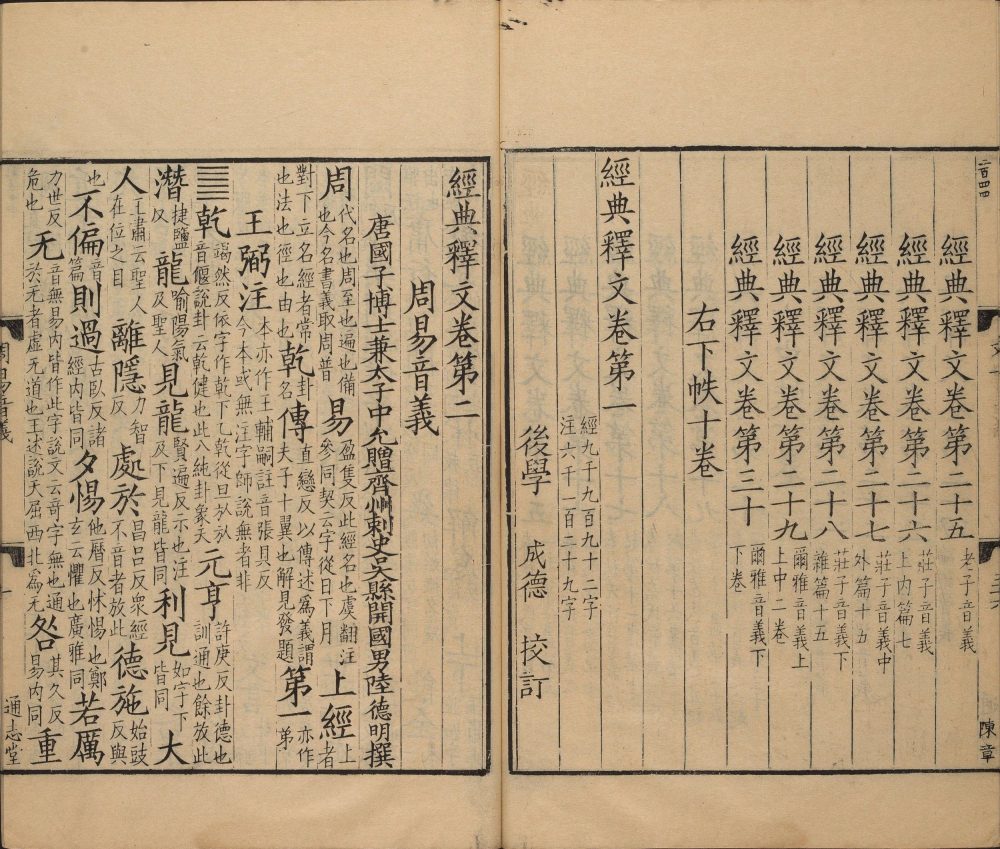 二百四四
經典釋文卷第二十五 老子音義
經典釋文卷第二十六 莊子音義上内篇七
經典釋文卷第二十七 莊子音義中外篇十五
經典釋文卷第二十八 莊子音義下雜篇十五
經典釋文卷第二十九 爾雅音義上上中二卷
經典釋文卷第三十 爾雅音義下下卷
右下帙十卷
經典釋文卷第一 經九千九百九十二字注六千一百二十九字
後學 成德 挍訂
陳章
經典釋文卷第二
周易音義
唐國子博士兼太子中允贈齊州刺史吳縣開國男陸德明撰
周代名也周至也遍也備也今名書義取周普易盈隻反此經名也虞翻注參同契云字從日下月上經上者
對下立名經者常也法也徑也由也乾卦名傳直戀反以傳述爲義謂夫子十翼也解見發題第一亦作弟
王弼注本亦作王輔嗣註音張具反今本或無注字師說無者非
乾竭然反依字作乾下乙乾從旦㫃音偃說卦云乾健也此八純卦象天元亨許庚反卦德也訓通也餘放此
潛捷鹽反龍喻陽氣及聖人見龍賢遍反示也注及下見龍皆同利見如字下皆同大
人王肅云聖人在位之目離隱力智反處於昌呂反衆經不音者放此德施始豉反與
也不偏音篇則過古臥反諸經内皆同夕惕他曆反怵惕也鄭玄云懼也廣雅同若厲
力世反危也无音無易内皆作此字說文云奇字無也通於无者虛无道也王述說天屈西北爲无咎其久反易内同重
周易音義
一
通志堂